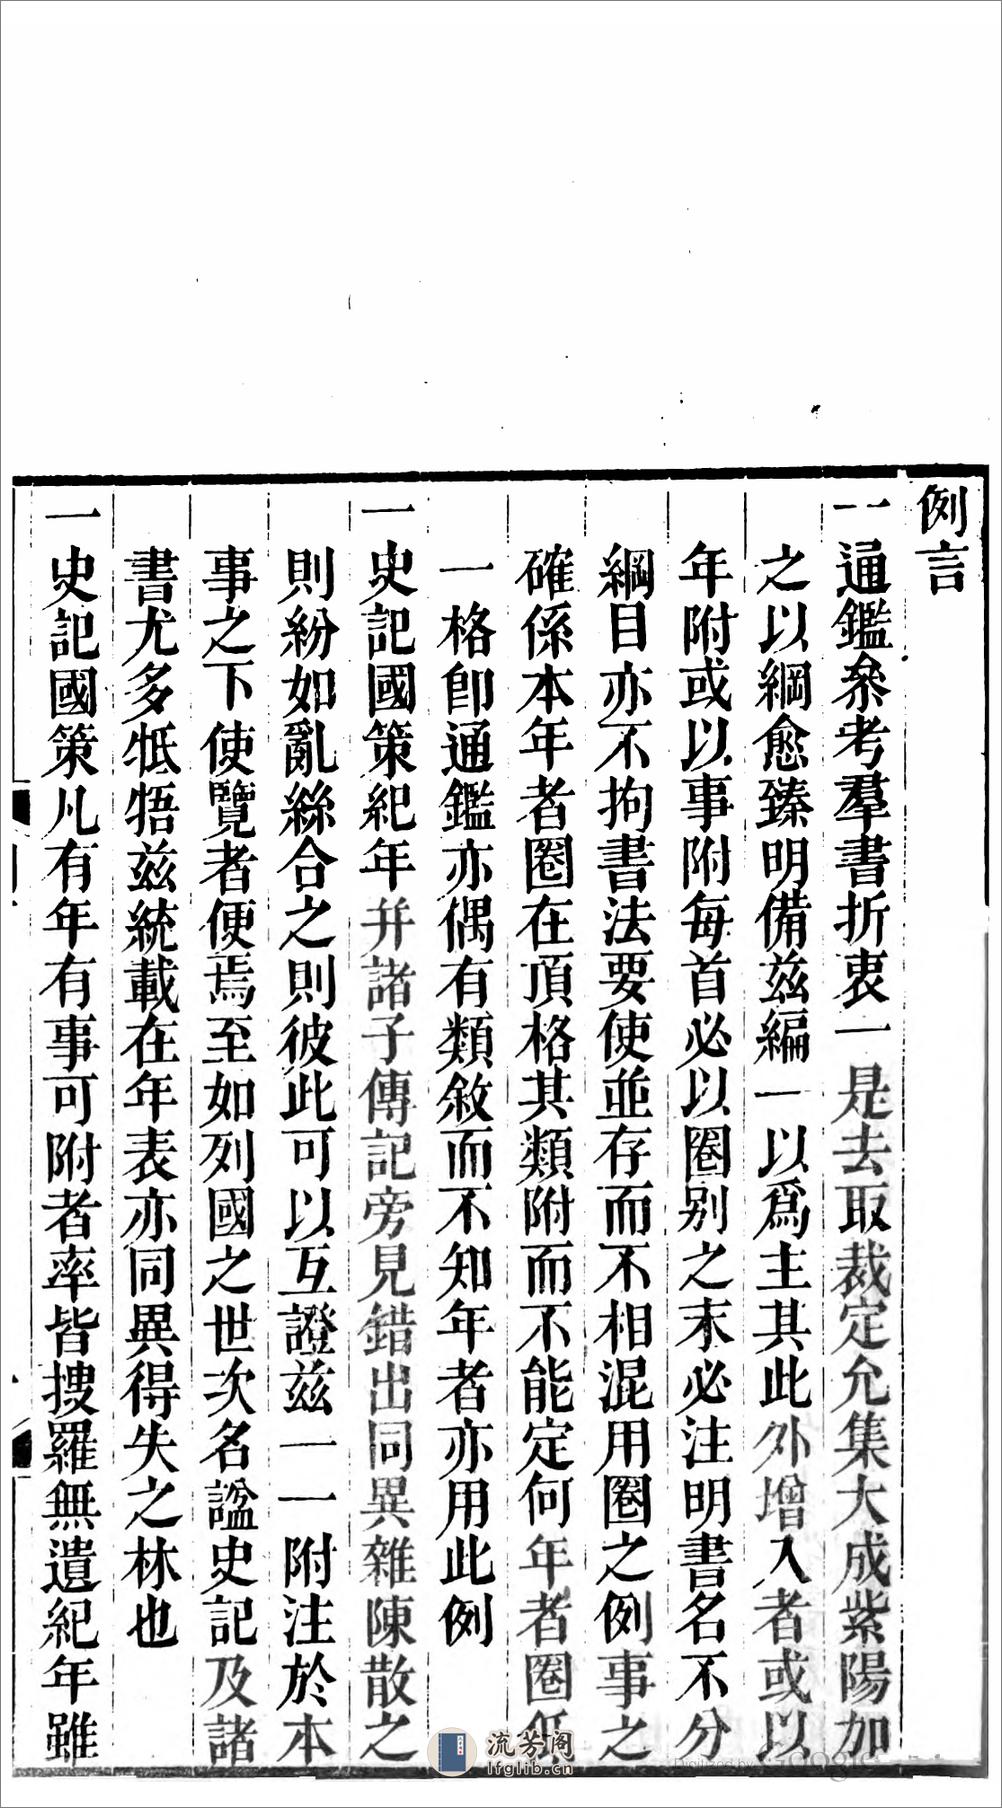 例言
一通鑑叅考羣書折衷一是去取裁定允集大成紫陽加
之以綱愈臻明備兹編一以爲主其此外增入者或以
年附或以事附每首必以圈别之末必注明書名不分
綱目亦不拘書法要使並存而不相混用圈之例事之
確係本年者圈在頂格其類附而不能定何年者圈低
一格卽通鑑亦偶有類敘而不知年者亦用此例
一史記國策紀年并諸子傳記旁見錯出同異雜陳散之
則紛如亂絲合之則彼此可以互證兹一一附注於本
事之下使覽者便焉至如列國之世次名諡史記及諸
書尤多牴牾兹統載在年表亦同異得失之林也
一史記國策凡有年有事可附者率皆搜羅無遺紀年雖
流芳阁
lfglib.cn
Digitized by Google